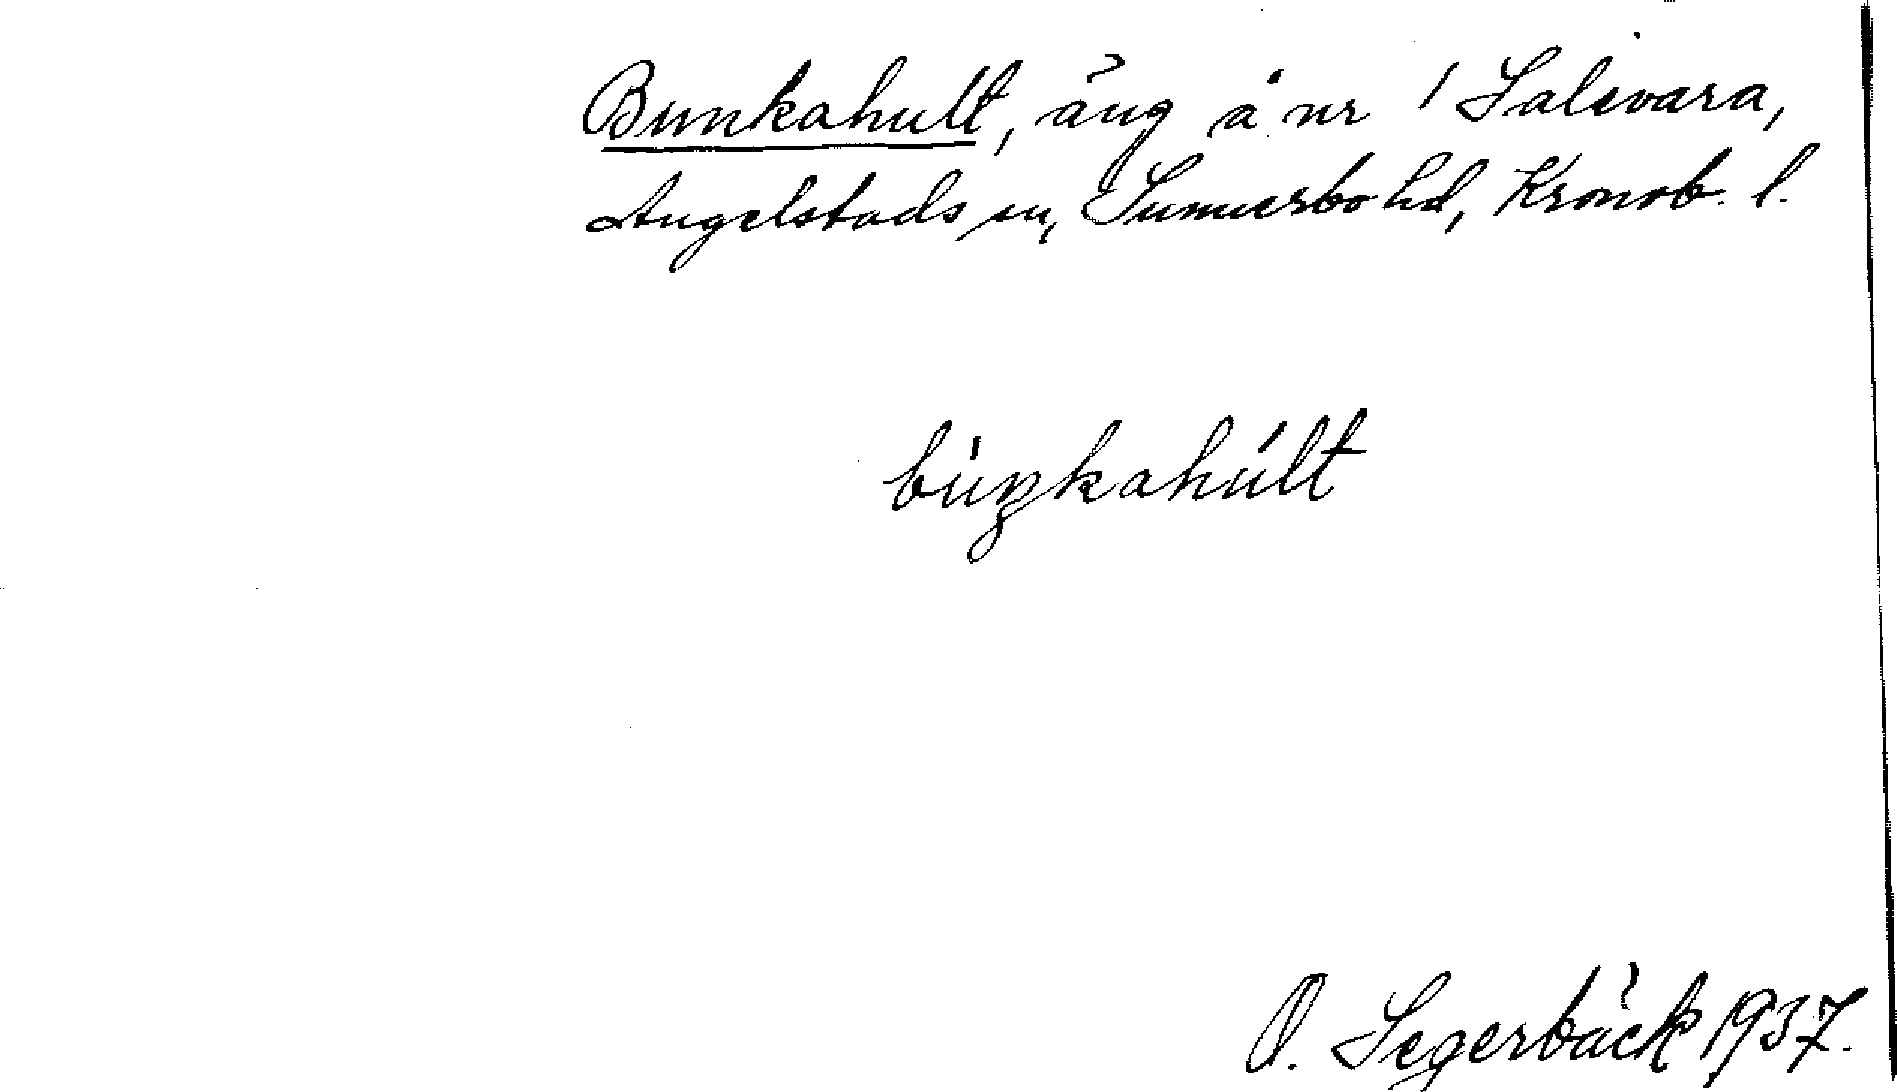 Bunkahult, äng å nr 1 Salsvara,
Angelstads sn, Sunnerbo hd, Kronob. l.
bùŋkahúlt
O. Segerbäck 1937.